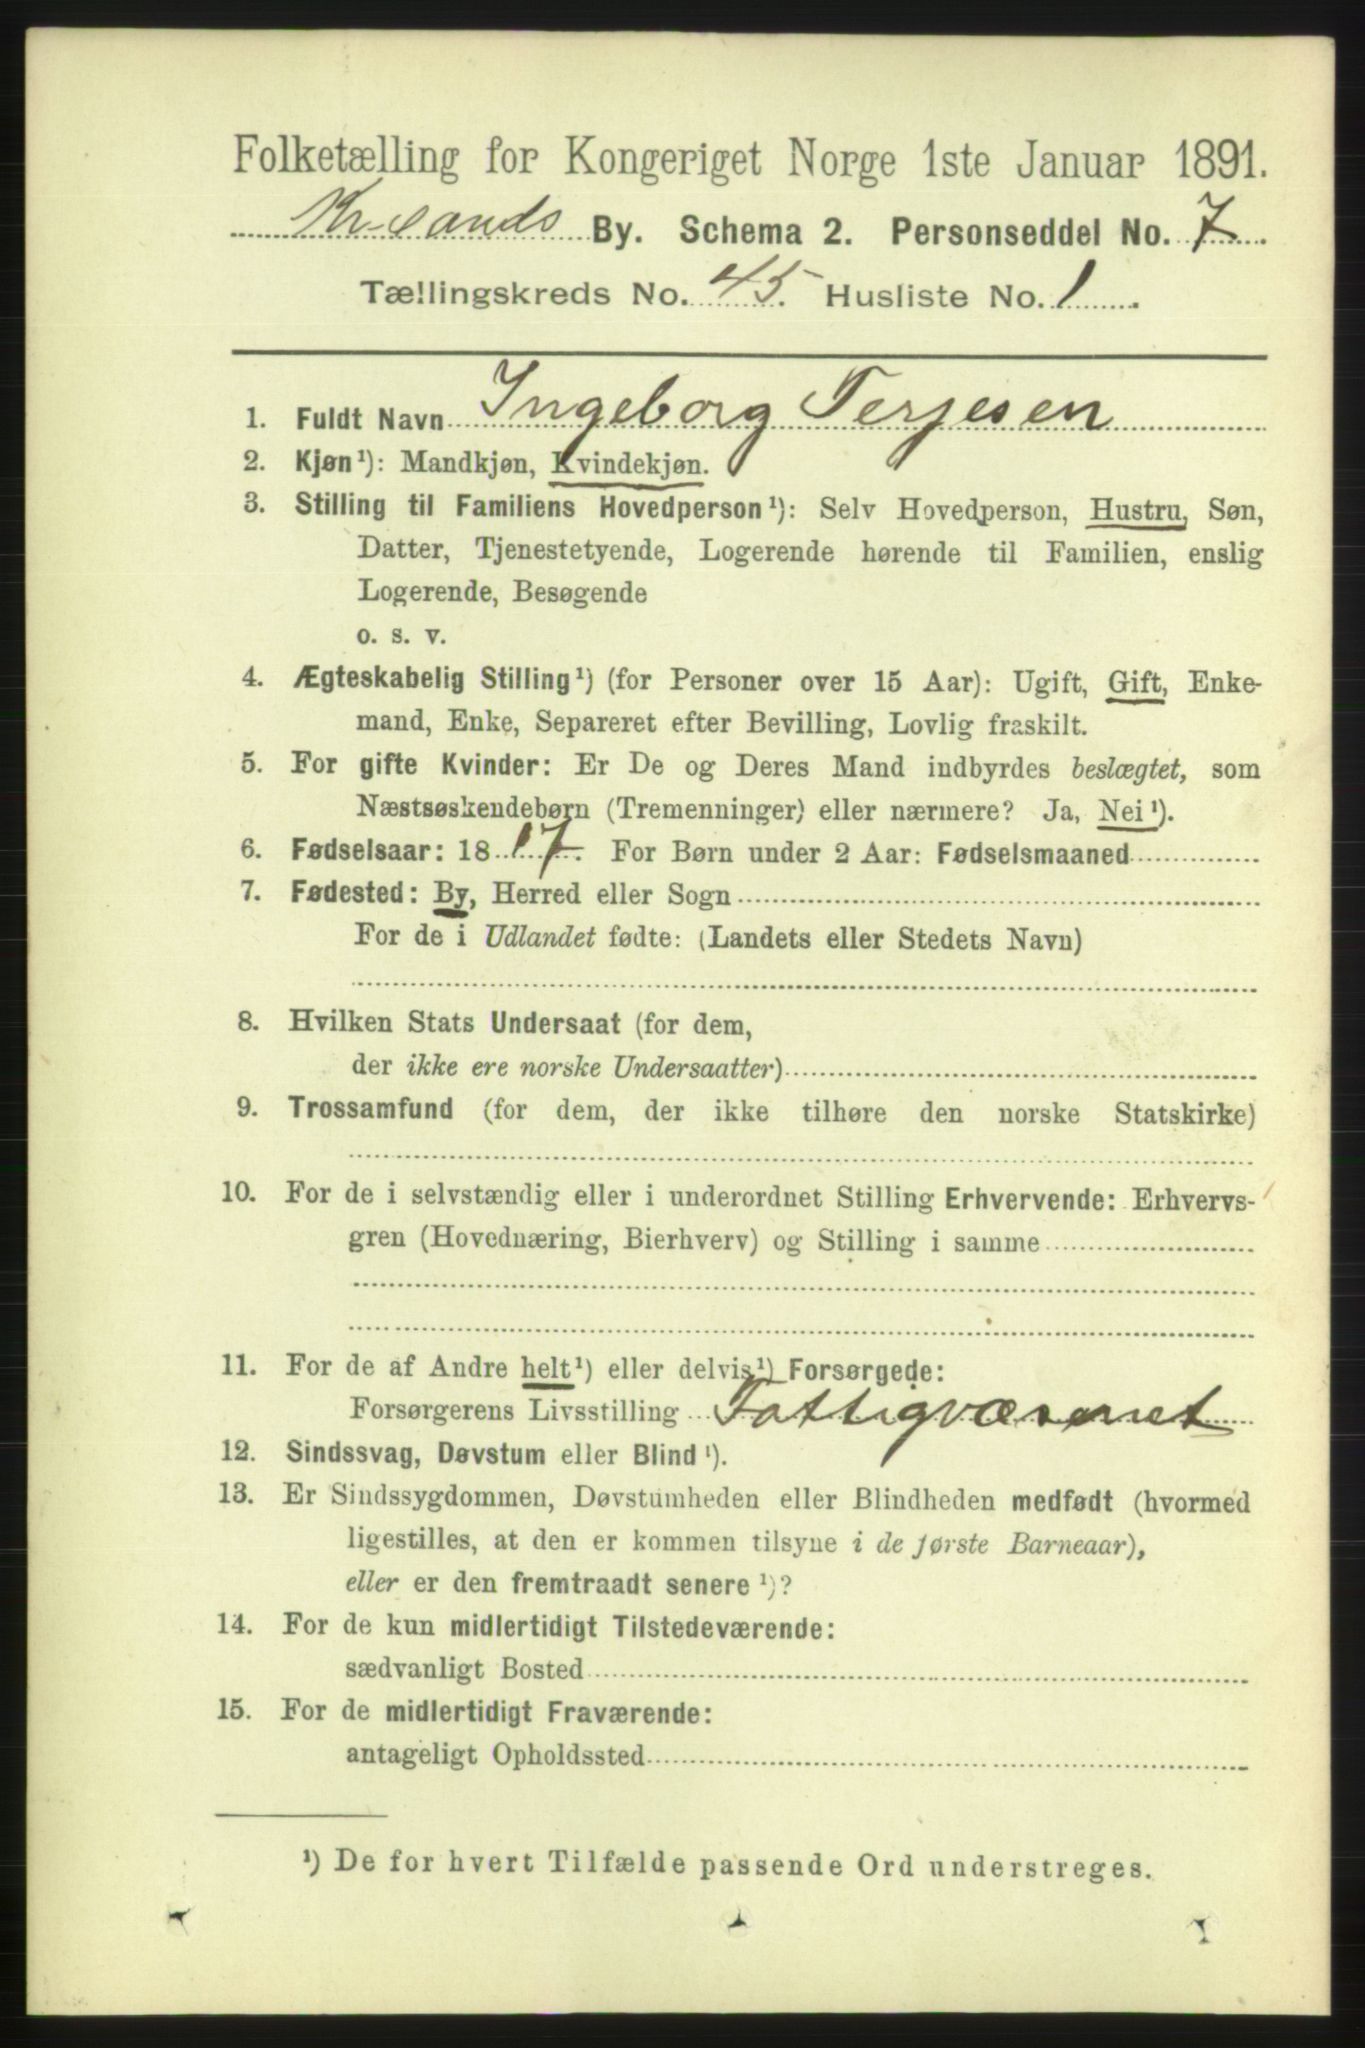 Folketælling for Kongeriget Norge 1ste Januar 1891.
Kr.sands By. Schema 2. Personseddel No. 7
Tællingskreds No. 45. Husliste No. 1
1. Fuldt Navn Ingeborg Terjesen
2. Kjøn¹): Mandkjøn, Kvindekjøn.
3. Stilling til Familiens Hovedperson¹): Selv Hovedperson, Hustru, Søn,
Datter, Tjenestetyende, Logerende hørende til Familien, enslig
Logerende, Besøgende
o. s. v.
4. Ægteskabelig Stilling¹) (for Personer over 15 Aar): Ugift, Gift, Enke-
mand, Enke, Separeret efter Bevilling, Lovlig fraskilt.
5. For gifte Kvinder: Er De og Deres Mand indbyrdes beslægtet, som
Næstsøskendebørn (Tremenninger) eller nærmere? Ja, Nei¹).
6. Fødselsaar: 1817. For Børn under 2 Aar: Fødselsmaaned
7. Fødested: By, Herred eller Sogn
For de i Udlandet fødte: (Landets eller Stedets Navn)
8. Hvilken Stats Undersaat (for dem,
der ikke ere norske Undersaatter)
9. Trossamfund (for dem, der ikke tilhøre den norske Statskirke)
10. For de i selvstændig eller i underordnet Stilling Erhvervende: Erhvervs-
gren (Hovednæring, Bierhverv) og Stilling i samme
11. For de af Andre helt¹) eller delvis¹) Forsørgede:
Forsørgerens Livsstilling Fattigvæsenet
12. Sindssvag, Døvstum eller Blind¹).
13. Er Sindssygdommen, Døvstumheden eller Blindheden medfødt (hvormed
ligestilles, at den er kommen tilsyne i de første Barneaar),
eller er den fremtraadt senere¹)?
14. For de kun midlertidigt Tilstedeværende:
sædvanligt Bosted
15. For de midlertidigt Fraværende:
antageligt Opholdssted
¹) De for hvert Tilfælde passende Ord understreges.